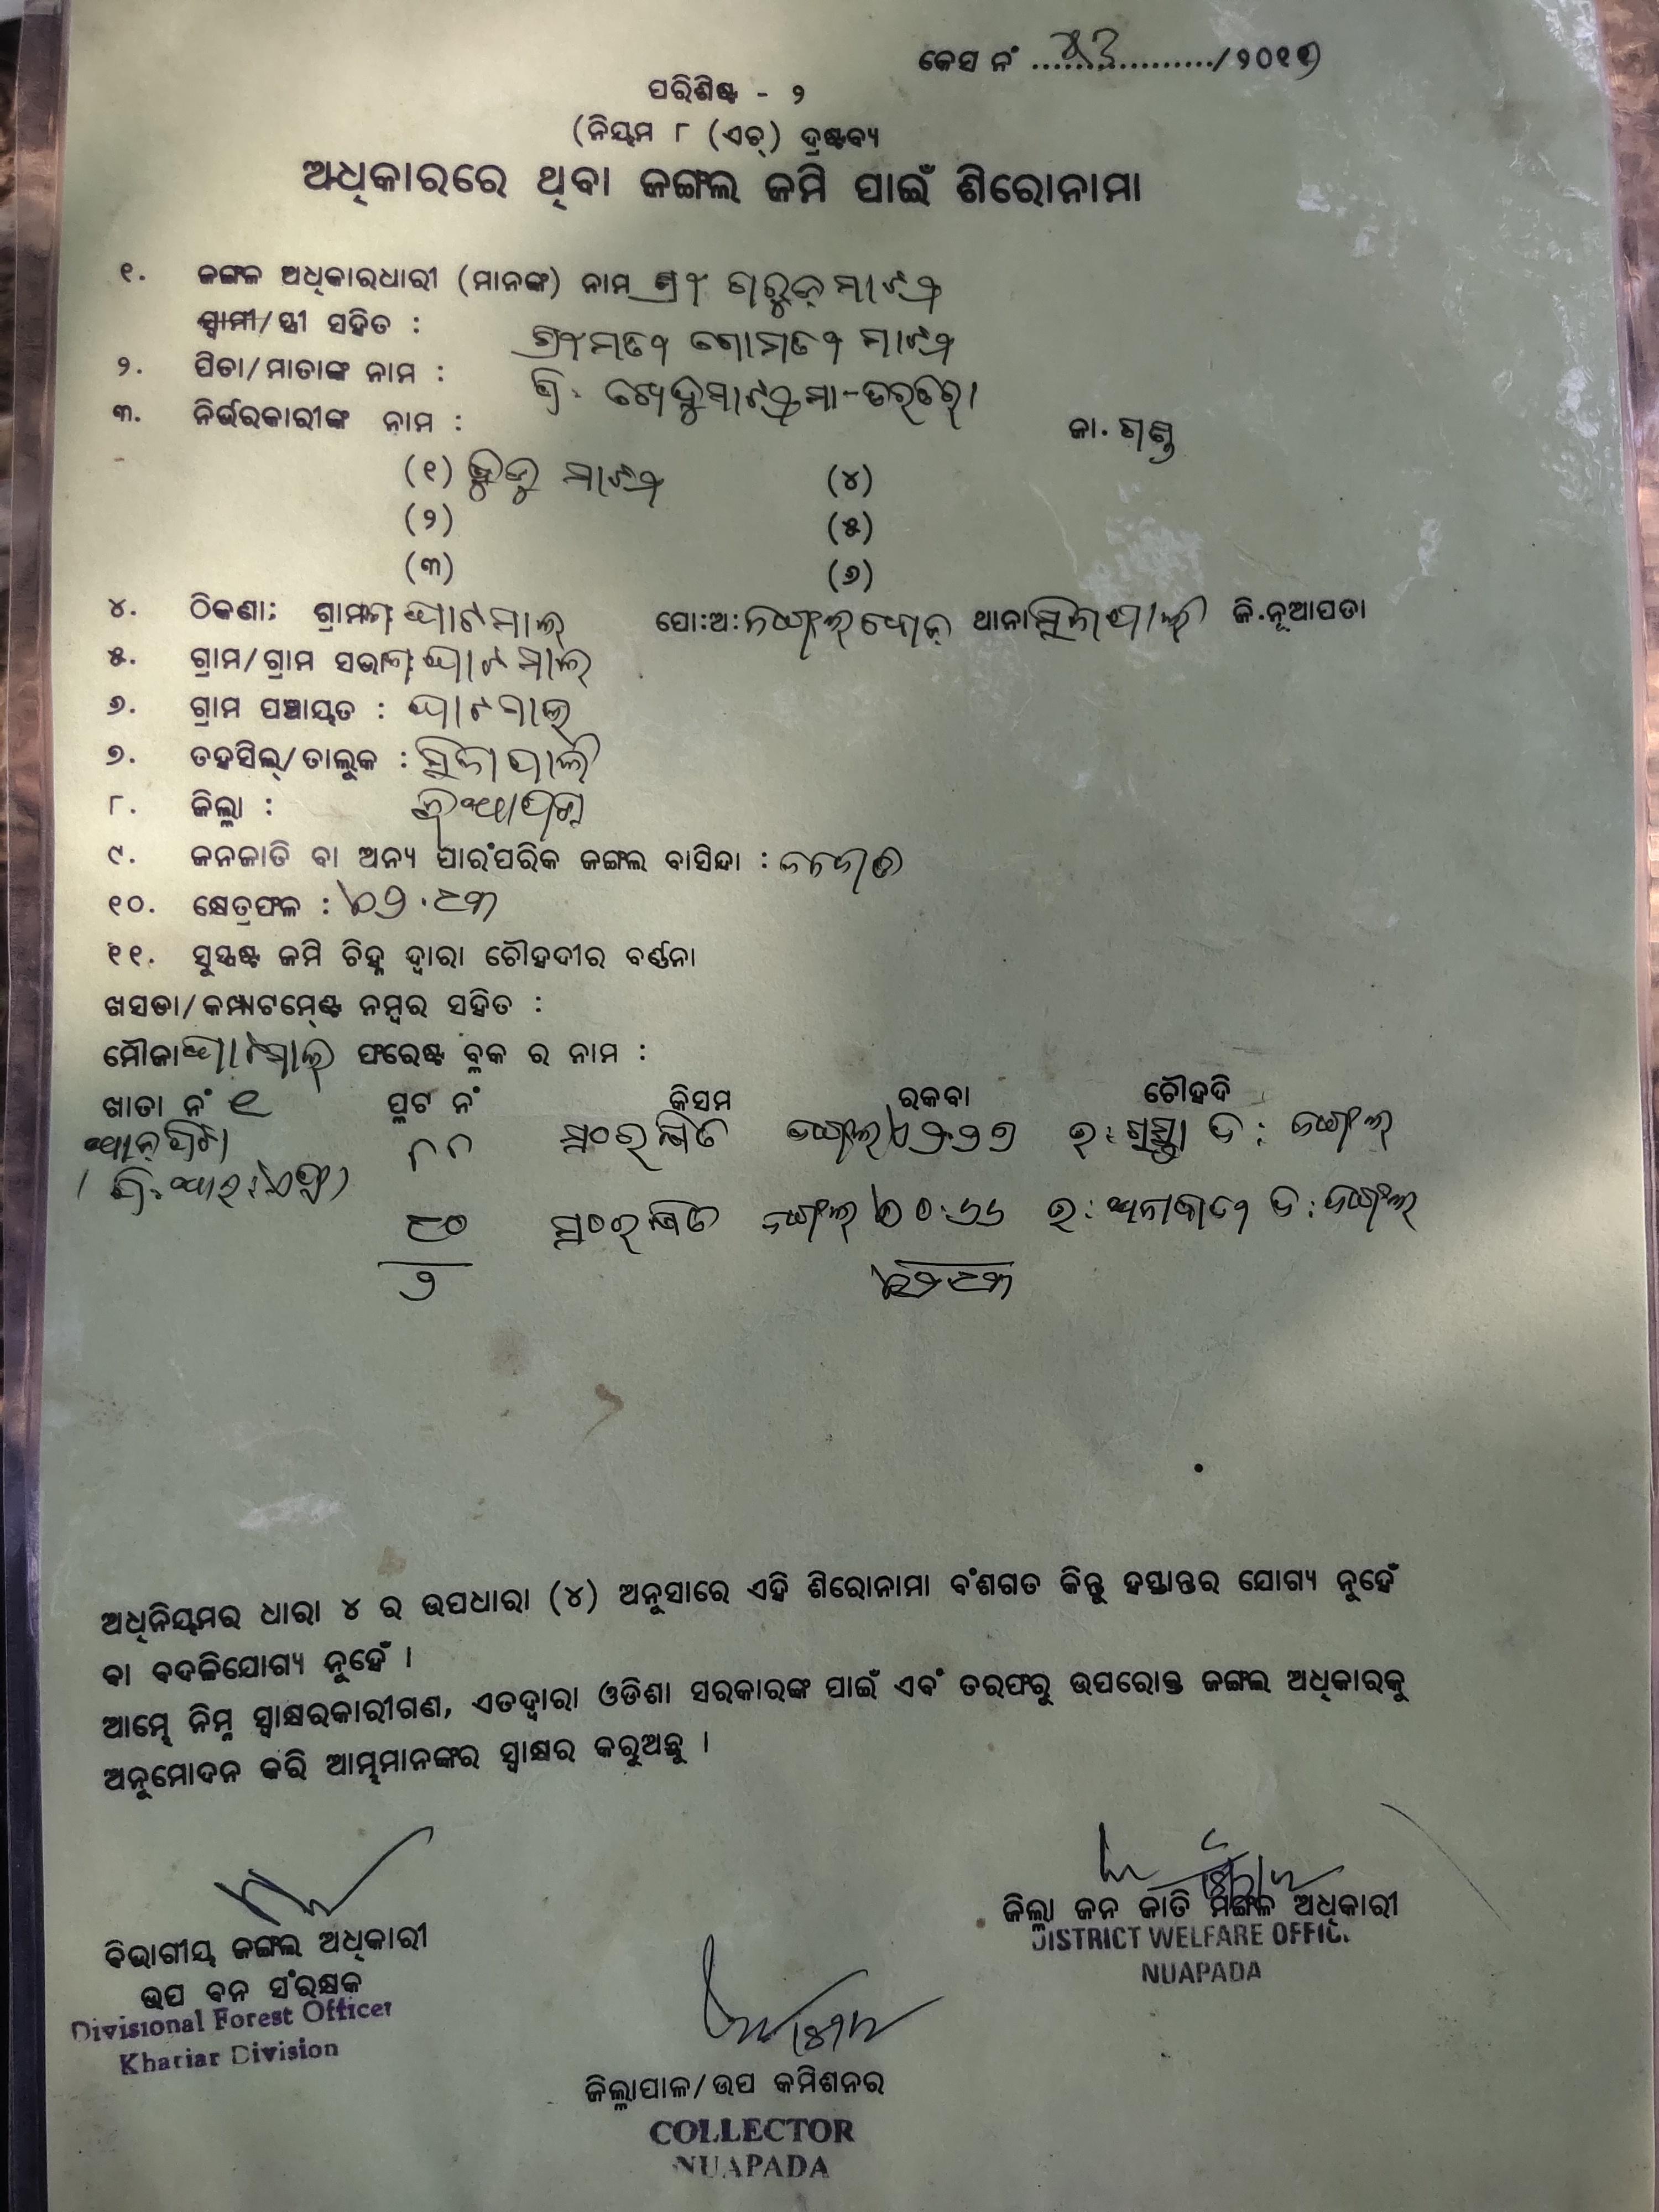 କେସ ନଂ ................./୨୦୧୧
ପରିଶିଷ୍ଟ - ୨
(ନିୟମ ୮ (ଏଚ୍) ଦ୍ରଷ୍ଟବ୍ୟ
ଅଧିକାରରେ ଥିବା ଜଙ୍ଗଲ ଜମି ପାଇଁ ଶିରୋନାମା
୧. ଜଙ୍ଗଲ ଅଧିକାରଧାରୀ (ମାନଙ୍କ) ନାମ ଶ୍ରୀ ଗରୁଡ଼ ମାଝୀ
ସ୍ବାମୀ/ସ୍ତ୍ରୀ ସହିତ : ଶ୍ରୀମତୀ ଗୋମତୀ ମାଝୀ
୨. ପିତା/ମାତାଙ୍କ ନାମ :
୩. ନିର୍ଭରକାରୀଙ୍କ ନାମ : ଜା. ଗଣ୍ଡ
(୧) ମାଝୀ (୪)
(୨) (୫)
(୩) (୬)
୪. ଠିକଣା: ଗ୍ରାମ ଘାଟମାଲ୍ ପୋ:ଅ: ଥାନା ସିନାପାଲି ଜି.ନୂଆପଡା
୫. ଗ୍ରାମ/ଗ୍ରାମ ସଭା ଘାଟମାଲ୍
୬. ଗ୍ରାମ ପଞ୍ଚାୟତ : ଘାଟମାଲ୍
୭. ତହସିଲ୍/ତାଲୁକ : ସିନାପାଲି
୮. ଜିଲ୍ଲା : ନୂଆପଡା
୯. ଜନଜାତି ବା ଅନ୍ୟ ପାରଂପରିକ ଜଙ୍ଗଲ ବାସିନ୍ଦା : ଜନଜାତି
୧୦. କ୍ଷେତ୍ରଫଳ : ୦୨.୯୩
୧୧. ସୁସ୍ପଷ୍ଟ ଜମି ଚିହ୍ନ ଦ୍ୱାରା ଚୌହଦୀର ବର୍ଣ୍ଣନା
ଖସଡା/କମ୍ପାଟମେଣ୍ଟ ନମ୍ବର ସହିତ :
ମୌଜା ଘାଟମାଲ୍ ଫରେଷ୍ଟ ବ୍ଲକ ର ନାମ :
ଖାତା ନଂ ୧ ପ୍ଲଟ ନଂ କିସମ ରକବା ଚୌହଦି
୮୮ ସଂରକ୍ଷିତ ଜଙ୍ଗଲ ୨.୨୭ ଉ: ରାସ୍ତା ଦ: ଜଙ୍ଗଲ
୯୦ ସଂରକ୍ଷିତ ଜଙ୍ଗଲ ୦୦.୬୬ ଉ: ଦ: ଜଙ୍ଗଲ
୨ ୨.୯୩
ଅଧିନିୟମର ଧାରା ୪ ର ଉପଧାରା (୪) ଅନୁସାରେ ଏହି ଶିରୋନାମା ବଂଶଗତ କିନ୍ତୁ ହସ୍ତାନ୍ତର ଯୋଗ୍ୟ ନୁହେଁ
ବା ବଦଳିଯୋଗ୍ୟ ନୁହେଁ ।
ଆମ୍ଭେ ନିମ୍ନ ସ୍ୱାକ୍ଷରକାରୀଗଣ, ଏତଦ୍ୱାରା ଓଡିଶା ସରକାରଙ୍କ ପାଇଁ ଏବଂ ତରଫରୁ ଉପରୋକ୍ତ ଜଙ୍ଗଲ ଅଧିକାରକୁ
ଅନୁମୋଦନ କରି ଆମ୍ଭମାନଙ୍କର ସ୍ୱାକ୍ଷର କରୁଅଛୁ ।
ଜିଲ୍ଲା ଜନ ଜାତି ମଙ୍ଗଳ ଅଧିକାରୀ
DISTRICT WELFARE OFFIC.
NUAPADA
ବିଭାଗୀୟ ଜଙ୍ଗଲ ଅଧିକାରୀ
ଉପ ବନ ସଂରକ୍ଷକ
Divisional Forest Officer
Khariar Division
ଜିଲ୍ଲାପାଳ/ଉପ କମିଶନର
COLLECTOR
NUAPADA